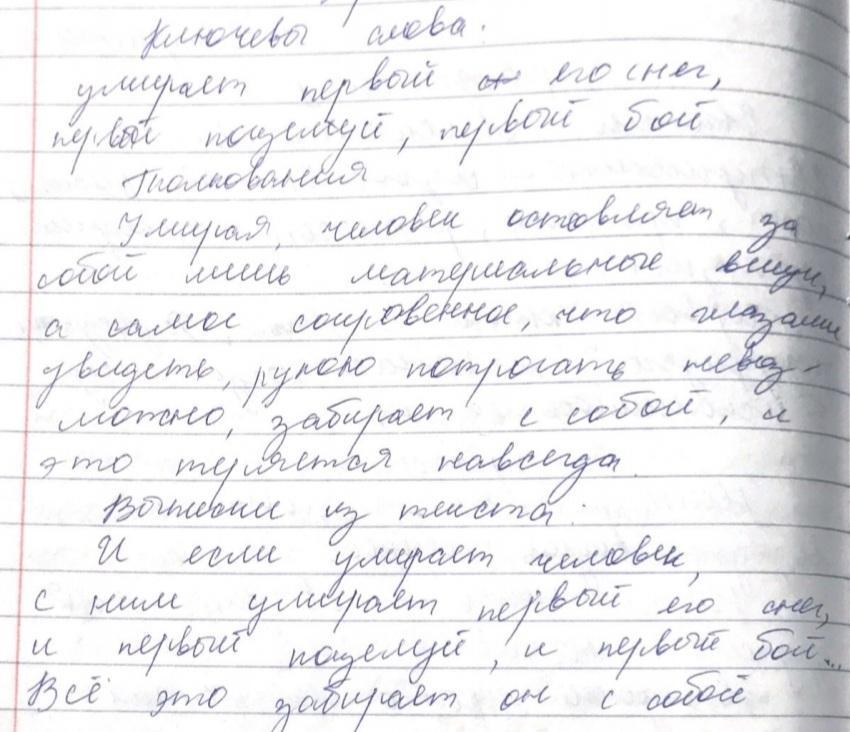 Ключевы слова:
умирает первый его снег,
первый поцелуй, первый бой
Толкования
Умирая, человек оставляет за
собой лишь материальные вещи,
а самое сокровенное, что глазами
увидеть, рукою потрогать невоз-
можно, забирает с собой, и
это теряется навсегда.
Выписки из текста:
И если умирает человек,
с ним умирает первый его снег,
и первый поцелуй, и первый бой...
Всё это забирает он с собой